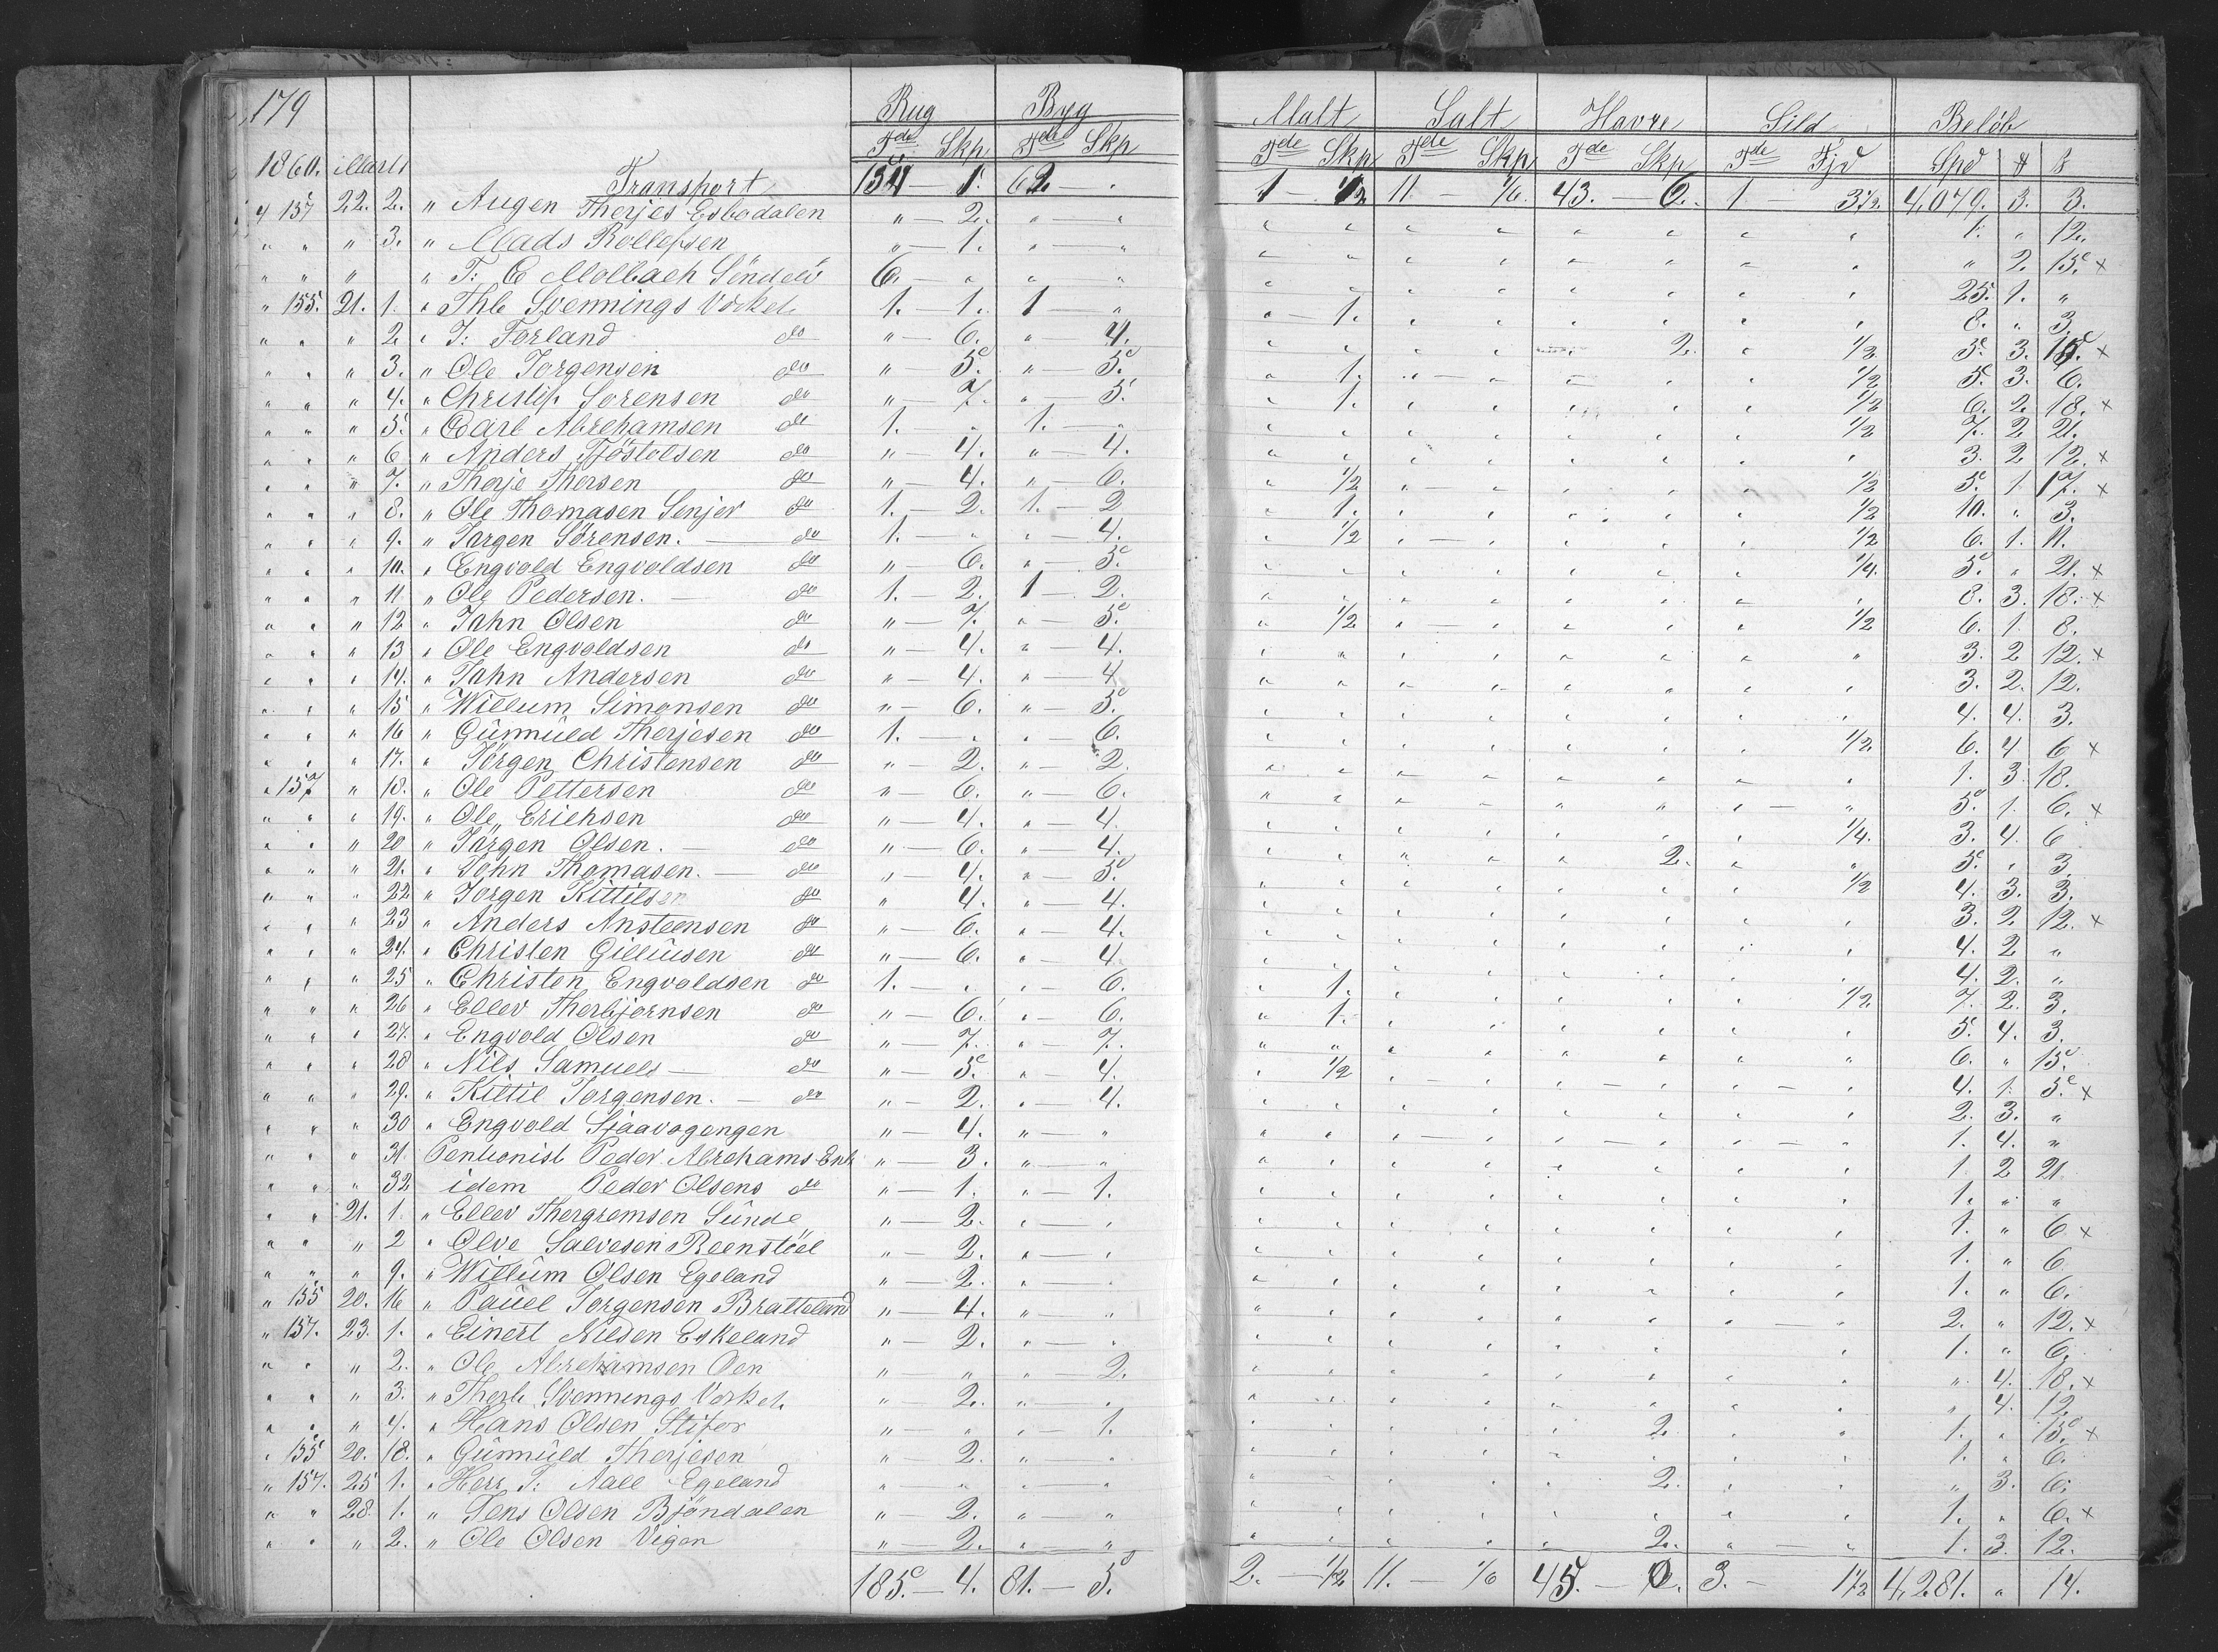 179 Rug Byg Malt Salt Havre Sild Beløb
Tde Skp Tde Skp Tde Skp Tde Skp Tde Skp Tde Fjd Spd ß
1860. Marts Transport 154 — 1. 62 — . 1 — 1/2 11. — 1/6. 43. — 6. 1 — 3 1/2. 4,079. 3. 3.
4 157 22. 2. " Augen Therjes Esbodalen " — 2. " — " 1. " 12.
" " " 3. " Mads Rollefsen " — 1. " — " " 2. 15. x
" " " " T: C Molbach Söndelö 6. " " " 25. 1. "
" 155. 21. 1. " Thb Svennings Værket 1. — 1. 1 — " " — 1. 8. " 3.
" " " 2. " J: Forland do " — 6. " — 4. 2. 1/2 3. 3. 15. x
" " " 3. " Ole Jorgensen do " — 5. " — 5. " 1. 1/2 5. 3. 6.
" " " 4. " Christif. Sorensen do " — 7. " — 5. " 1. 1/2 6. 2. 18. x
" " " 5. " Carl Abrehamsen do 1. " 1. — " 1/2 7. 2. 21.
" " " 6 " Anders Tjöstolsen do " — 4. " — 4. 3. 2 12. x
" " " 7. " Therje Thorsen do " — 4. " — 6. " 1/2 1/2 5. 1 17. x
" " " 8. " Ole Thomasen Senjer do 1. — 2. 1. — 2 " 1. 1/2 10. " 3.
" " " 9. " Jargen Sörensen. — do 1. — " " — 4. " 1/2 1/2 6. 1. 11.
" " " 10. " Engvold Engvoldsen do " — 6. " — 5. 1/4. 5. " 21. x
" " " 11 " Ole Pedersen. — do 1. — 2. 1 — 2. 8. 3. 18. x
" " " 12 " Jahn Olsen do " — 7. " — 5. " 1/2 1/2 6. 1. 8.
" " " 13 " Ole Engvoldsen do " — 4. " — 4. 3. 2 12. x
" " " 14. " Jahn Andersen do " — 4. " — 4 3. 2. 12.
" " " 15 " Willum Simonsen do " — 6. " — 5. 4. 4. 3.
" " " 16 " Günnüld Therjesen do 1. — " " — 6. 1/2. 6. 4 6 x
" " " 17. " Jörgen Christensen do " — 2. " — 2. 1. 3. 18.
" 157 " 18. " Ole Pettersen do " — 6. " — 6. 5. 1. 6. x
" " " 19. " Ole Erichsen do " — 4. " — 4. 1/4. 3. 4. 6
" " " 20 " Jörgen Olsen. — do " — 6. " — 4. 2. 5. " 3.
" " " 21. " John Thomasen. — do " — 4. " — 5. 1/2 4. 3. 3.
" " " 22 " Jorgen Kittilsen do " 4. " — 4. 3. 2. 12. x
" " " 23 " Anders Ansteensen do " — 6. " — 4. 4. 2 "
" " " 24. " Christen Gilliusen do " — 6. " — 4 4. 2. "
" " " 25 " Christen Engvoldsen do 1. — " " — 6. " 1. 1/2 7. 2. 3.
" " " 26 " Ellev Therbjornsen do " — 6. " — 6. " 1. 5. 4. 3.
" " " 27. " Engvold Olsen do " — 7. " — 7. 6. " 15.
" " " 28 " Nils Samuels — do " — 5. " — 4. " 1/2 4. 1. 5. x
" " " 29. " Kittil Jorgensen. — do " — 2. " — 4. 2. 3. "
" " " 30 " Engvold Sjaavogengen " — 4. " — " 1. 4. "
" " " 31. Pentionist Peder Abrehams Enk " — 3. " — " 1. 2 21.
" " " 32 idem Peder Olsens do " — 1. " — 1. 1. " "
" " 21. 1. " Ellev Thorgremsen Sünde " — 2. " — " 1. " 6 x
" " " 2 " Olve Salvesen Reenstöel " — 2. " — " 1. " 6
" " " 9. " Willüm Olsen Egeland " — 2. " — " 1. " 6.
" 155 20. 16 " Paüel Jorgensen Bratteland " — 4. " — " 2. " 12. x
" 157. 23. 1. " Einert Nilsen Eskeland " — 2. " — " 1. " 6.
" " " 2. " Ole Abrehamsen Oen " — " " — 2. " 4. 18. x
" " " 3. " Therb Svennings Værket " 2. " " " 4. 12.
" " " 4. " Hans Olsen Stifer " — " " — 1. 2. 1. " 15. x
" 155 20. 18. " Günnüld Therjesen " 2. " — " 1. " 6.
" 157. 25 1. " Herr J: Aall Egeland " — " " — " 2. " 3. 6.
" " 28. 1. " Jens Olsen Bjöndalen " — 2. " — " 1. " 6. x
" " " 2. " Ole Olsen Vigen " — 2. " — " 2. 1. 3. 12.
185. — 4. 81. — 5. 2. — 1/2 11. — 1/6 45. — 0. 3. — 1 1/2 4,281. " 14.